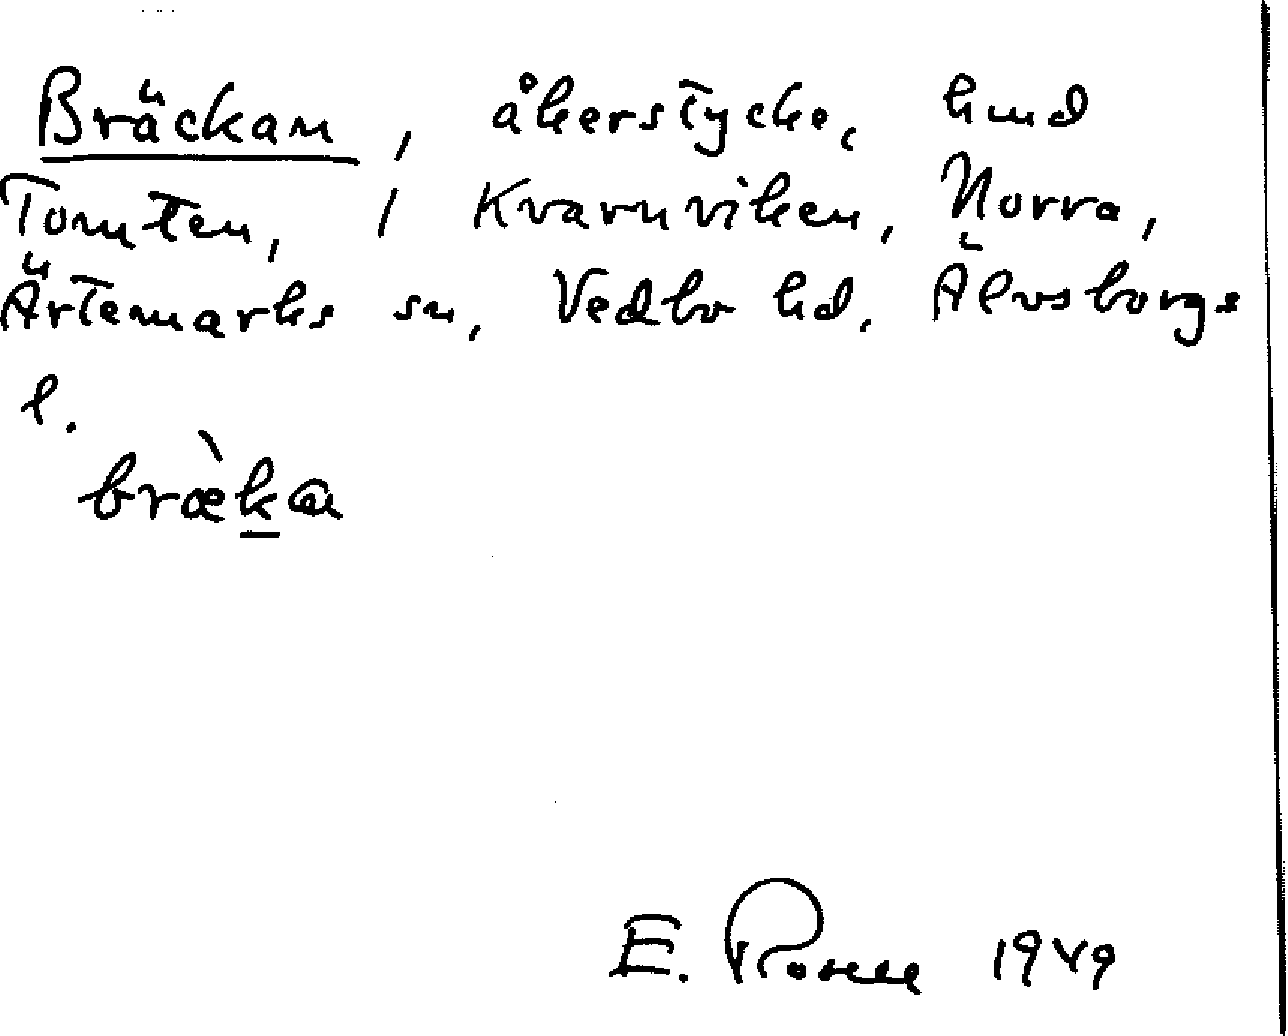 Bräckan, åkerstycke, hmd
Tomten, / Kvarnviken, Norra,
Ärtemarks sn, Vedbo hd, Älvsborgs
l.
bræ̀ka
E. Rosell 1949